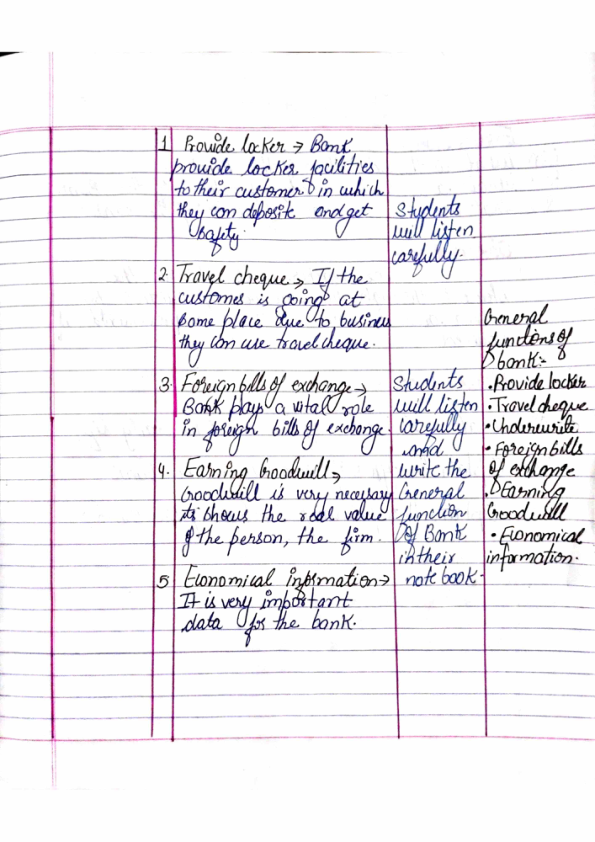 1 Provide locker → Bank
provide locker facilities
to their customer in which
they can deposite and get
safety.
2. Travel cheque → If the
customer is going at
some place due to business
they can use travel cheque.
3. Foreign bills of exchange →
Bank plays a vital role
in foreign bills of exchange
4. Earning Goodwill →
Goodwill is very necessary
its shows the real value
of the person, the firm.
5 Economical information →
It is very important
data for the bank.
Students
will listen
carefully.
Students
will listen
carefully
and
write the
General
function
of Bank
in their
note book.
General
functions of
bank:-
• Provide locker
• Travel cheque
• Underwrite
• Foreign bills
of exchange
• Earning
Goodwill
• Economical
information.